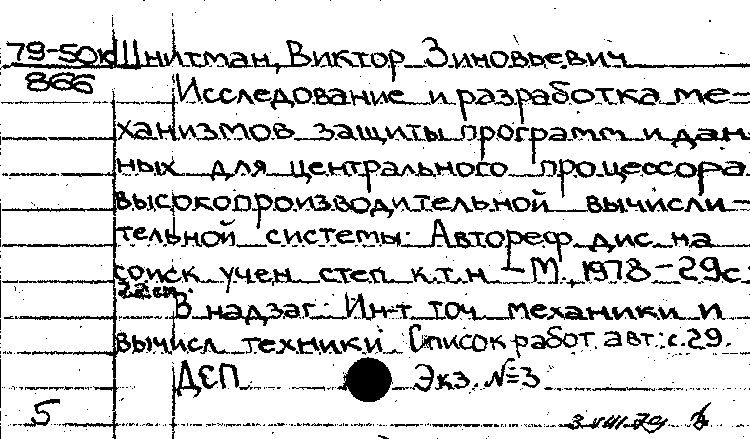 79-50к Шнитман, Виктор Зиновьевич
866 Исследование и разработка ме-
ханизмов защиты программ и дан
ных для центрального процессора
высокопроизводительной вычисли-
тельной системы: Автореф. дис. на
соиск учен степ к.т.н. – М., 1978 – 29с
22 см.
В надзаг: Ин-т точ механики и
вычисл техники. Список работ авт: с. 29.
ДСП Экз. №3
5 3.VIII.79